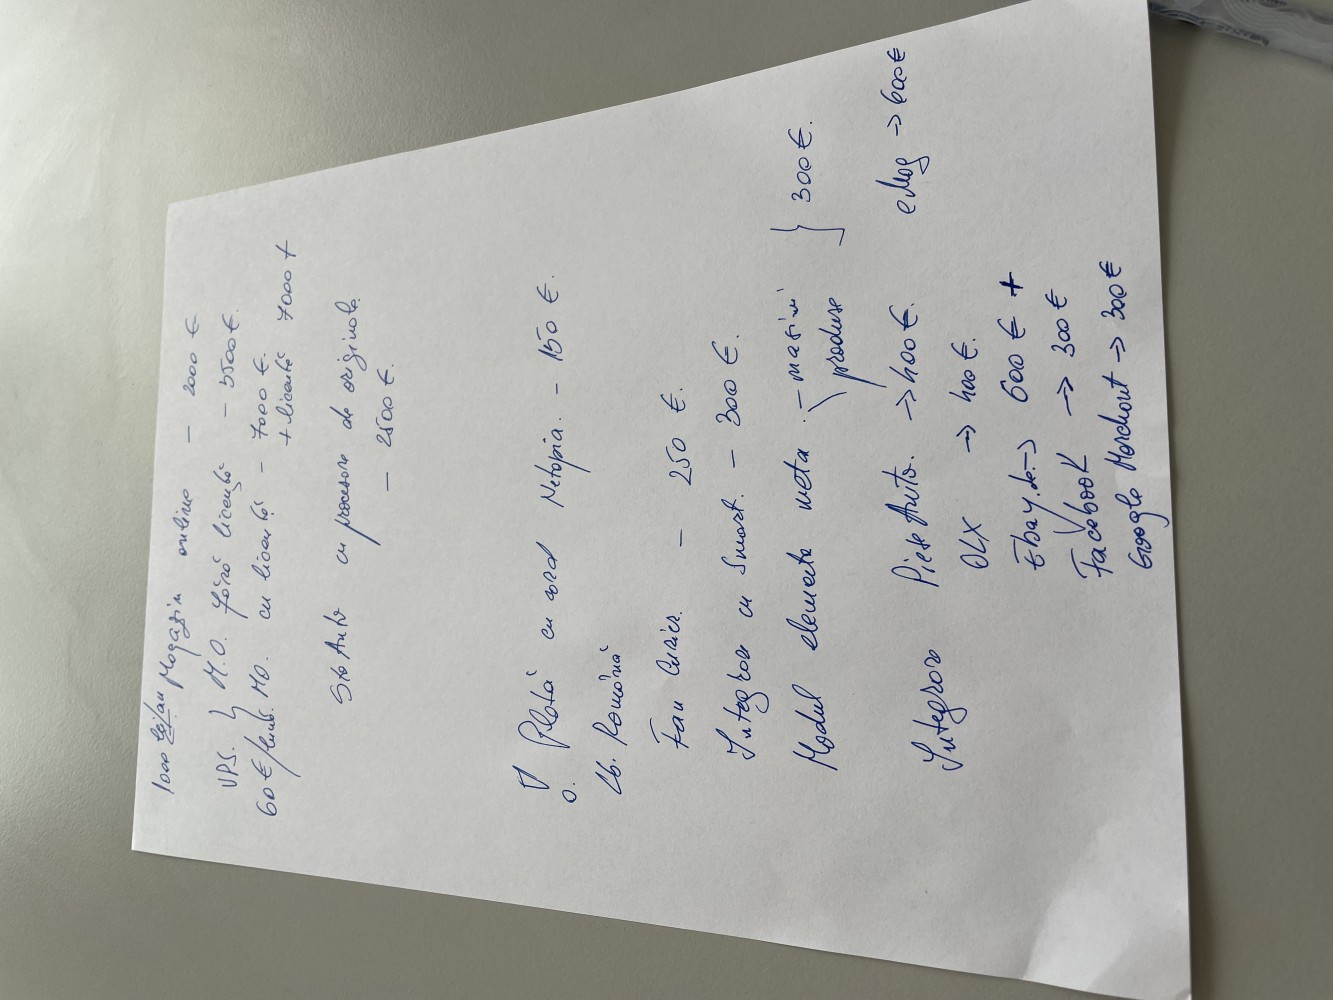 1000 lei/an Magazin online - 2000 €
VPS. } M.O. fără licență - 5500 €.
60 €/lună. MO. cu licență - 7000 €.
+ licență 7000 +
Sto Auto cu procesare de originale.
- 2500 €.
Plată cu card Netopia. - 150 €.
Lb. Română
Fan Curier. - 250 €.
Integrare cu Smart. - 300 €.
Modul elemente meta. - mașini } 300 €.
\ produse
Integrare Piese Auto. -> 400 €. eMag -> 600 €
OLX -> 400 €.
Ebay.de -> 600 € +
Facebook -> 300 €
Google Merchant -> 300 €